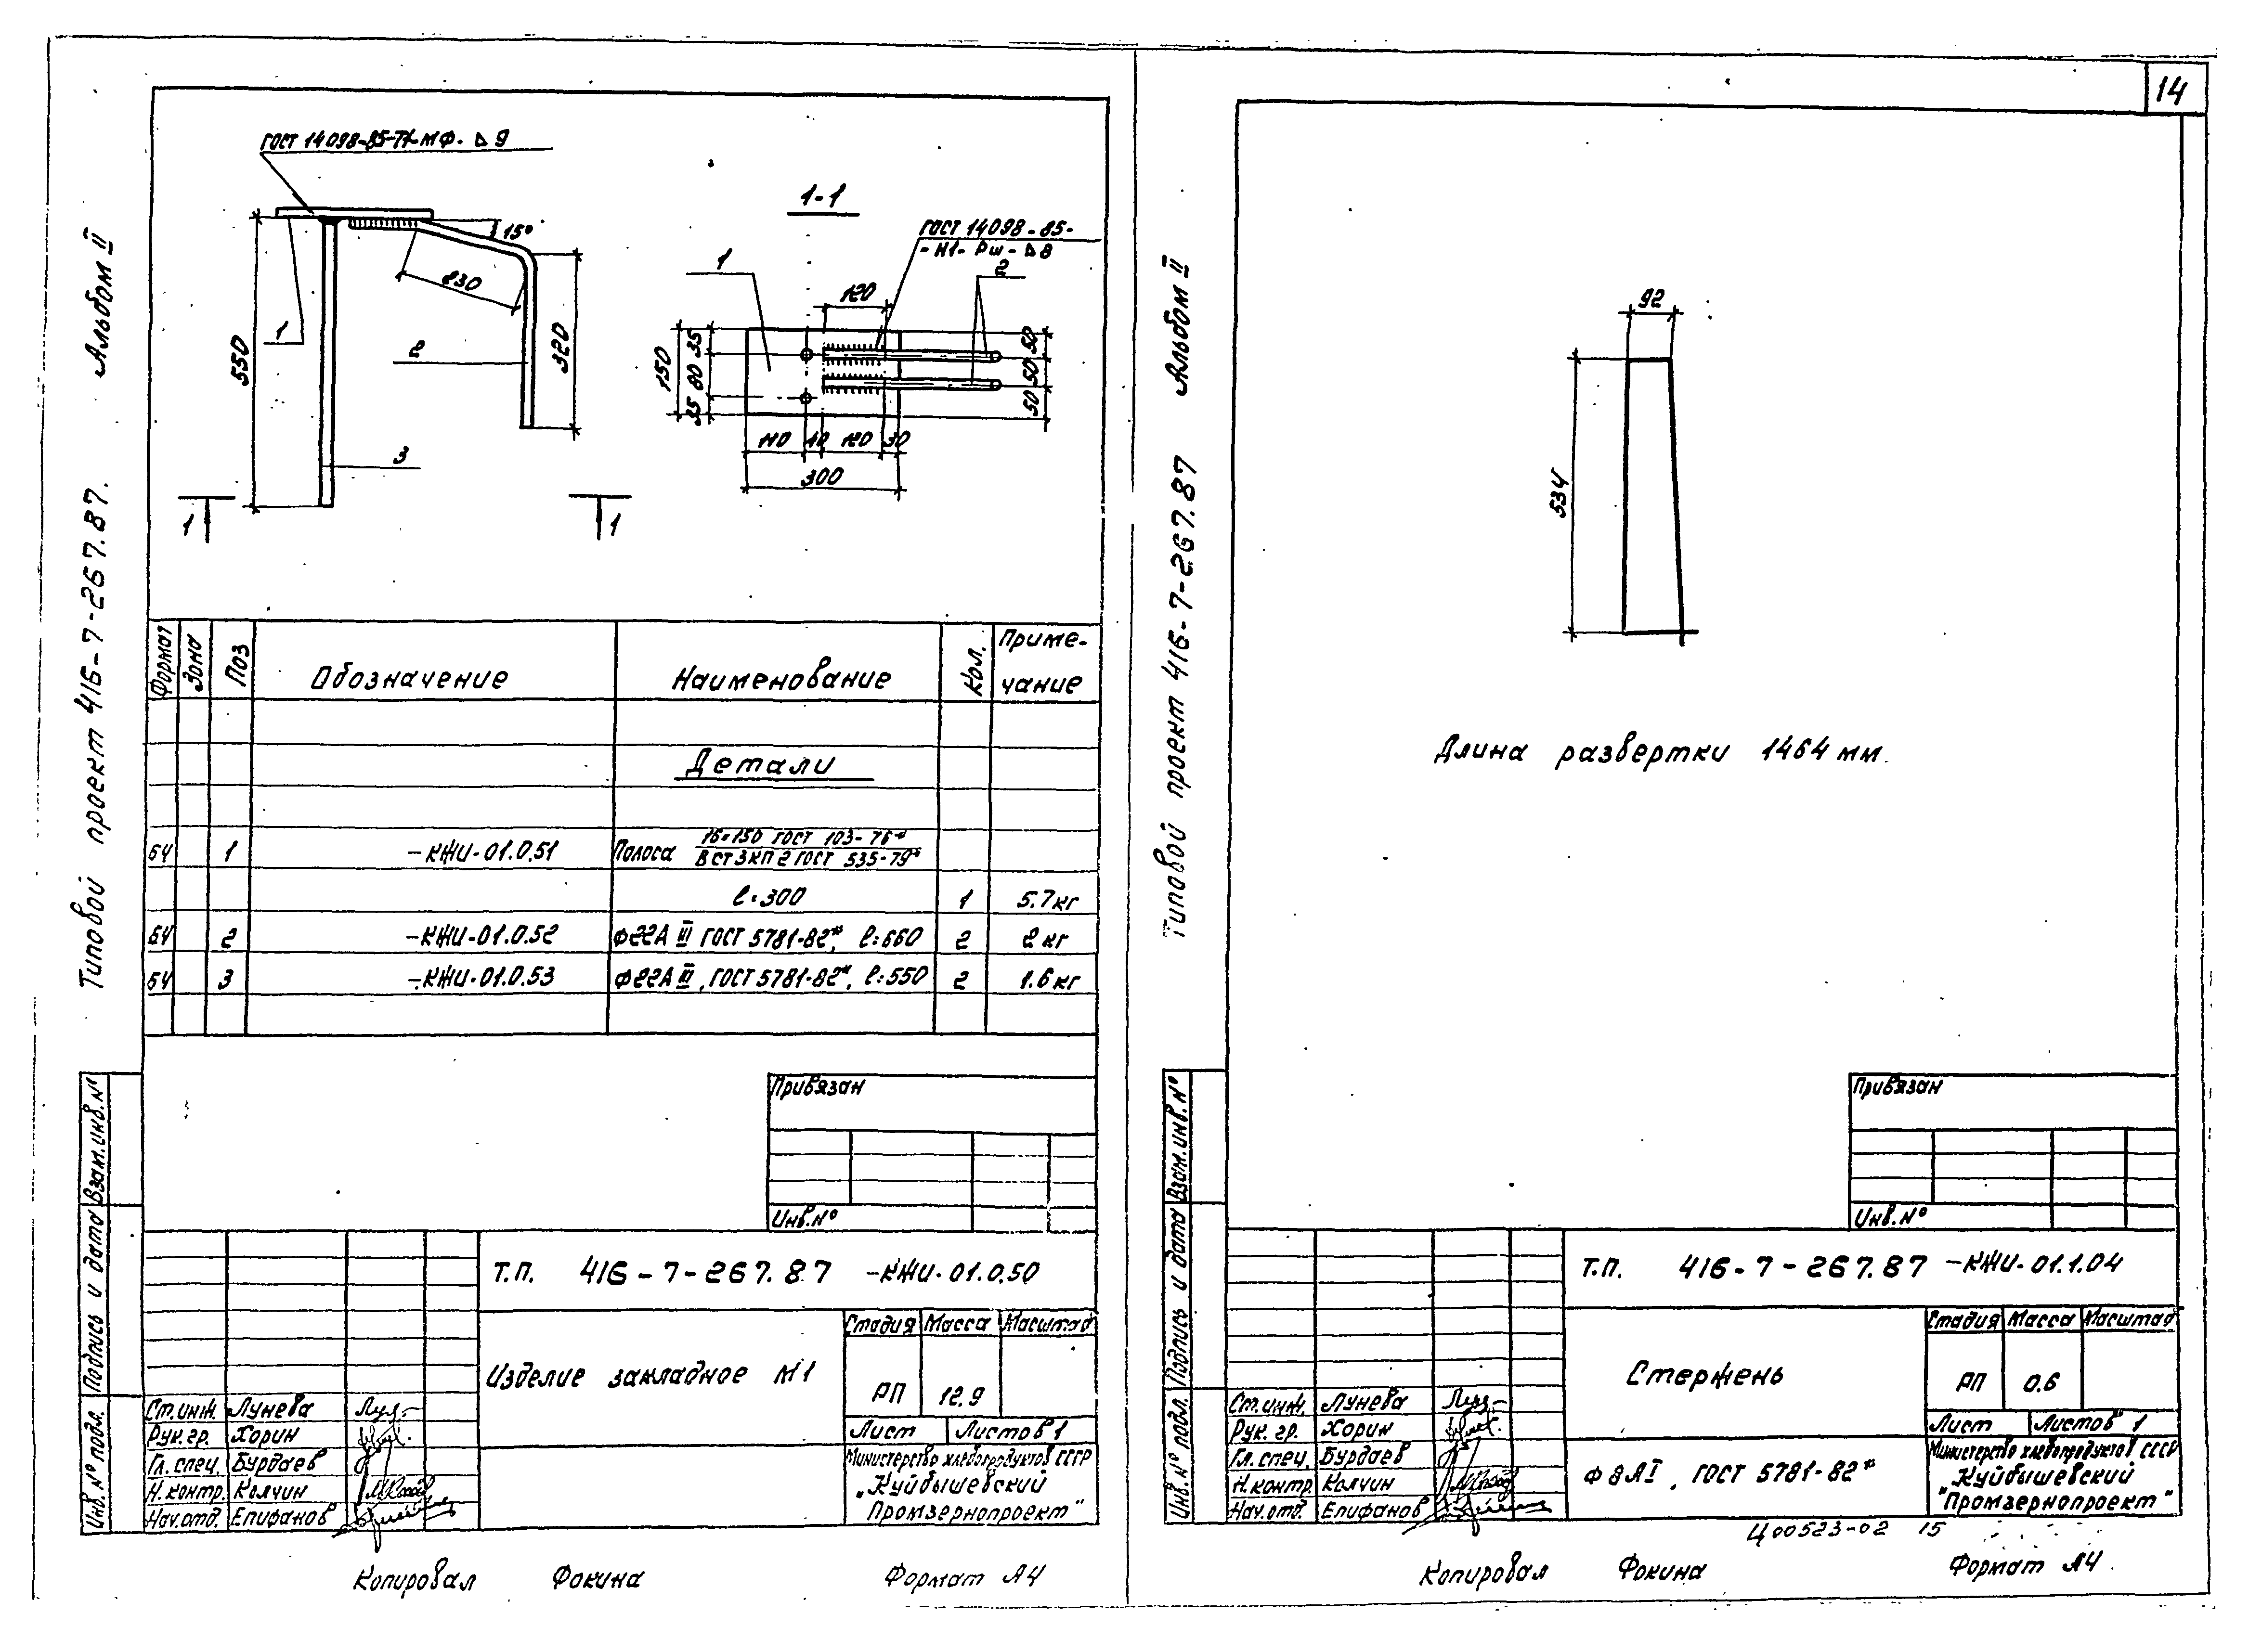 14
ГОСТ 14098-85-Т7-МФ. Δ 9
15°
230
550
320
1
2
3
1
1
1-1
ГОСТ 14098-85-
-Н1-Рш-Δ8
1
2
120
150
35
80
35
50
50
50
110
10
120
30
300
Альбом II
Типовой проект 416-7-267.87.
Формат
Зона
Поз
Обозначение
Наименование
Кол.
Приме-
чание
Детали
БЧ 1 -КЖИ-01.0.51 Полоса 16×150 ГОСТ 103-76*
В Ст 3 КП 2 ГОСТ 535-79*
ℓ=300 1 5.7кг
БЧ 2 -КЖИ-01.0.52 Ф22А III ГОСТ 5781-82*, ℓ=660 2 2 кг
БЧ 3 -КЖИ-01.0.53 Ф22А III, ГОСТ 5781-82*, ℓ=550 2 1.6 кг
Привязан
Инв.№
Взам.инв.№
Подпись и дата
Инв.№ подл.
Т.П. 416-7-267.87 -КЖИ-01.0.50
Изделие закладное М1
Стадия Масса Масштаб
РП 12.9
Лист Листов 1
Ст.инж. Лунева
Рук.гр. Хорин
Гл. спец. Бурдаев
Н.контр. Колчин
Нач.отд. Епифанов
Министерство хлебопродуктов СССР
„Куйбышевский
Промзернопроект"
Копировал Фокина Формат А4
Альбом II
Типовой проект 416-7-267.87
92
534
Длина развертки 1464 мм.
Привязан
Инв.№
Взам.инв.№
Подпись и дата
Инв.№ подл.
Т.П. 416-7-267.87 -КЖИ-01.1.04
Стержень
Стадия Масса Масштаб
РП 0.6
Лист Листов 1
Ст.инж. Лунева
Рук. гр. Хорин
Гл. спец. Бурдаев
Н.контр. Колчин
Нач.отд. Епифанов
Ф 8 А I, ГОСТ 5781-82*
Министерство хлебопродуктов СССР
Куйбышевский
"Промзернопроект"
Ц00523-02 15
Копировал Фокина Формат А4